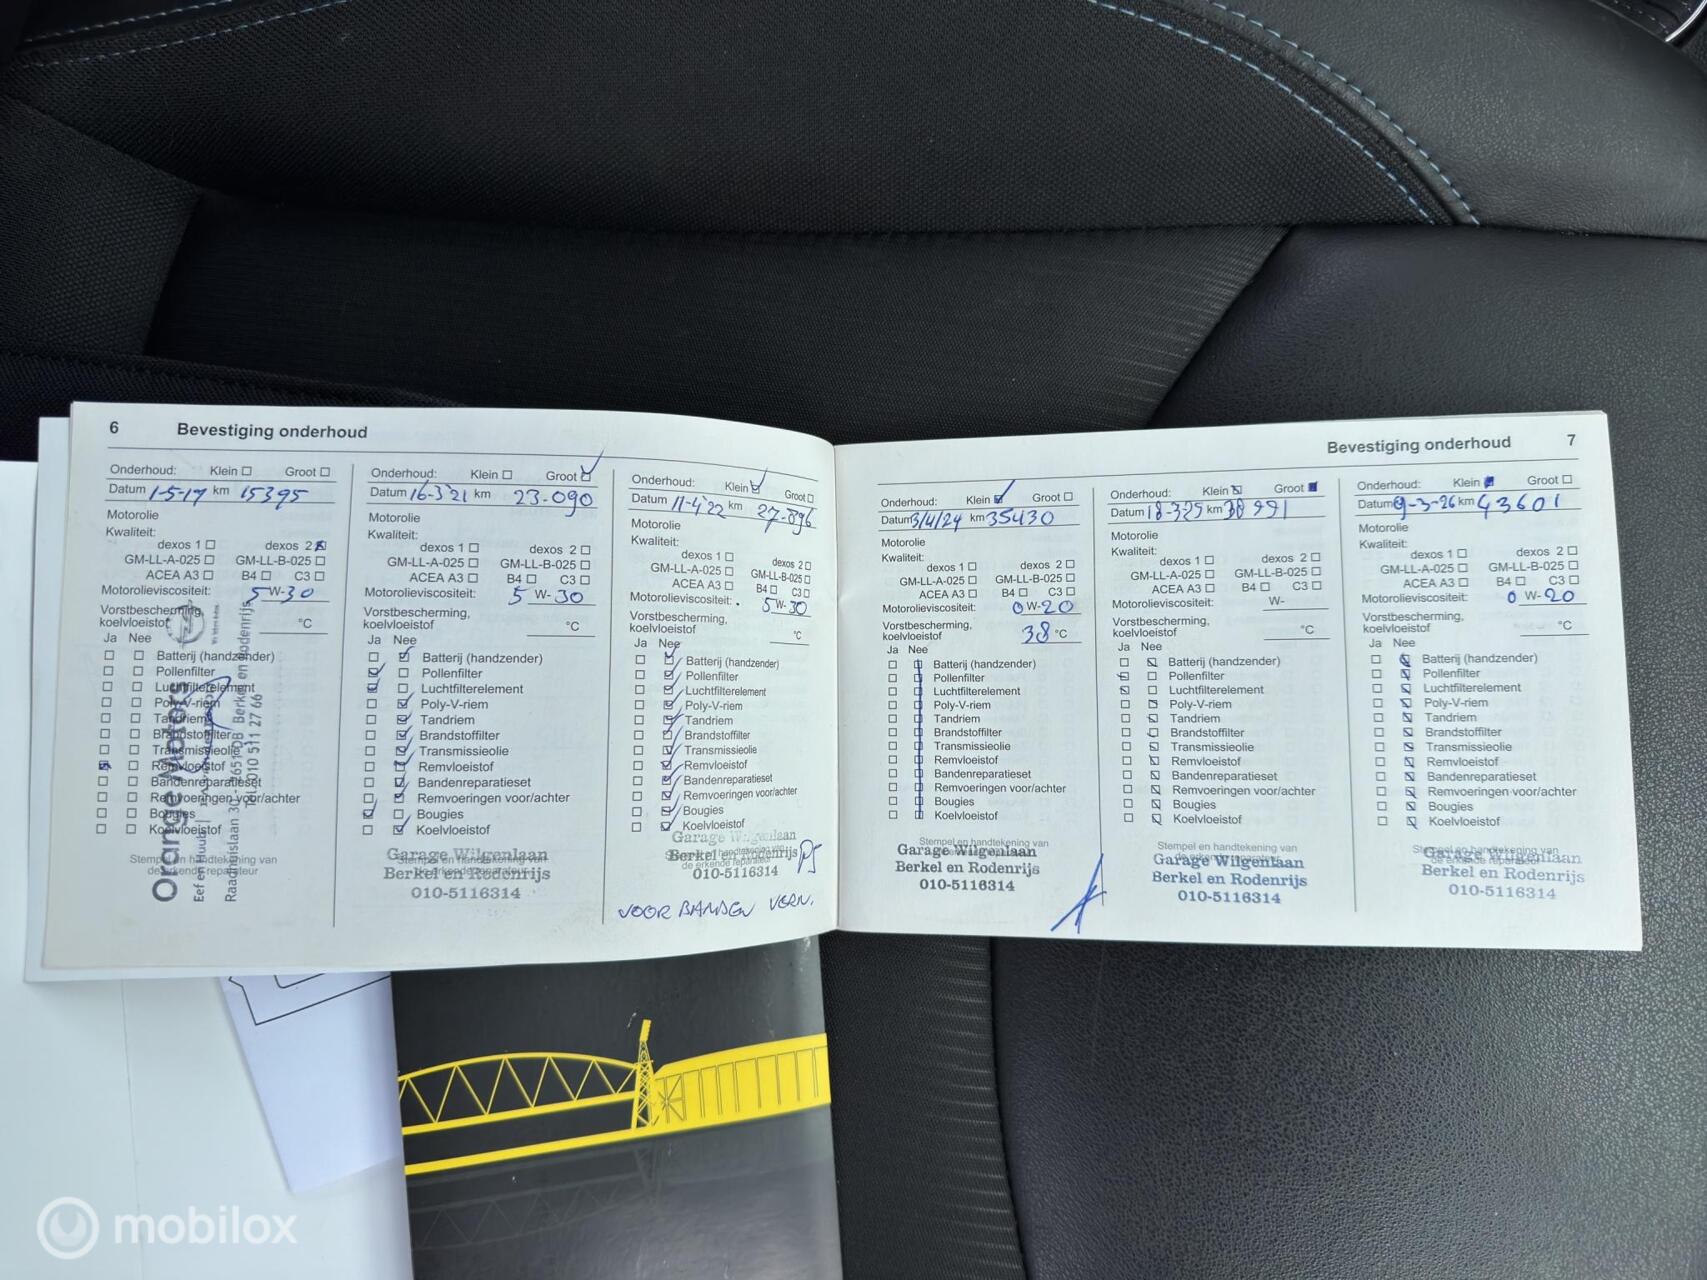 6 Bevestiging onderhoud
Onderhoud: Klein Groot
Datum 1-5-17 km 15395
Motorolie
Kwaliteit:
dexos 1 dexos 2
GM-LL-A-025 GM-LL-B-025
ACEA A3 B4 C3
Motorolieviscositeit: 5 W-30
Vorstbescherming,
koelvloeistof °C
Ja Nee
Batterij (handzender)
Pollenfilter
Luchtfilterelement
Poly-V-riem
Tandriem
Brandstoffilter
Transmissieolie
Remvloeistof
Bandenreparatieset
Remvoeringen voor/achter
Bougies
Koelvloeistof
Stempel en handtekening van
de erkende reparateur
Orange Motors
Tel. 010 511 27 66
Onderhoud: Klein Groot
Datum 16-3'21 km 23-090
Motorolie
Kwaliteit:
dexos 1 dexos 2
GM-LL-A-025 GM-LL-B-025
ACEA A3 B4 C3
Motorolieviscositeit: 5 W-30
Vorstbescherming,
koelvloeistof °C
Ja Nee
Batterij (handzender)
Pollenfilter
Luchtfilterelement
Poly-V-riem
Tandriem
Brandstoffilter
Transmissieolie
Remvloeistof
Bandenreparatieset
Remvoeringen voor/achter
Bougies
Koelvloeistof
Stempel en handtekening van
de erkende reparateur
Garage Wilgenlaan
Berkel en Rodenrijs
010-5116314
Onderhoud: Klein Groot
Datum 11-4'22 km 27-896
Motorolie
Kwaliteit:
dexos 1 dexos 2
GM-LL-A-025 GM-LL-B-025
ACEA A3 B4 C3
Motorolieviscositeit: 5 W-30
Vorstbescherming,
koelvloeistof °C
Ja Nee
Batterij (handzender)
Pollenfilter
Luchtfilterelement
Poly-V-riem
Tandriem
Brandstoffilter
Transmissieolie
Remvloeistof
Bandenreparatieset
Remvoeringen voor/achter
Bougies
Koelvloeistof
Stempel en handtekening van
de erkende reparateur
Garage Wilgenlaan
Berkel en Rodenrijs
010-5116314
VOOR BANDEN VERN.
Bevestiging onderhoud 7
Onderhoud: Klein Groot
Datum 3/4/24 km 35430
Motorolie
Kwaliteit:
dexos 1 dexos 2
GM-LL-A-025 GM-LL-B-025
ACEA A3 B4 C3
Motorolieviscositeit: 0 W-20
Vorstbescherming,
koelvloeistof 38 °C
Ja Nee
Batterij (handzender)
Pollenfilter
Luchtfilterelement
Poly-V-riem
Tandriem
Brandstoffilter
Transmissieolie
Remvloeistof
Bandenreparatieset
Remvoeringen voor/achter
Bougies
Koelvloeistof
Stempel en handtekening van
Garage Wilgenlaan
Berkel en Rodenrijs
010-5116314
Onderhoud: Klein Groot
Datum 18-3-25 km 38991
Motorolie
Kwaliteit:
dexos 1 dexos 2
GM-LL-A-025 GM-LL-B-025
ACEA A3 B4 C3
Motorolieviscositeit: W-
Vorstbescherming,
koelvloeistof °C
Ja Nee
Batterij (handzender)
Pollenfilter
Luchtfilterelement
Poly-V-riem
Tandriem
Brandstoffilter
Transmissieolie
Remvloeistof
Bandenreparatieset
Remvoeringen voor/achter
Bougies
Koelvloeistof
Stempel en handtekening van
Garage Wilgenlaan
Berkel en Rodenrijs
010-5116314
Onderhoud: Klein Groot
Datum 9-3-26 km 43601
Motorolie
Kwaliteit:
dexos 1 dexos 2
GM-LL-A-025 GM-LL-B-025
ACEA A3 B4 C3
Motorolieviscositeit: 0 W-20
Vorstbescherming,
koelvloeistof °C
Ja Nee
Batterij (handzender)
Pollenfilter
Luchtfilterelement
Poly-V-riem
Tandriem
Brandstoffilter
Transmissieolie
Remvloeistof
Bandenreparatieset
Remvoeringen voor/achter
Bougies
Koelvloeistof
Stempel en handtekening van
Garage Wilgenlaan
Berkel en Rodenrijs
010-5116314
mobilox